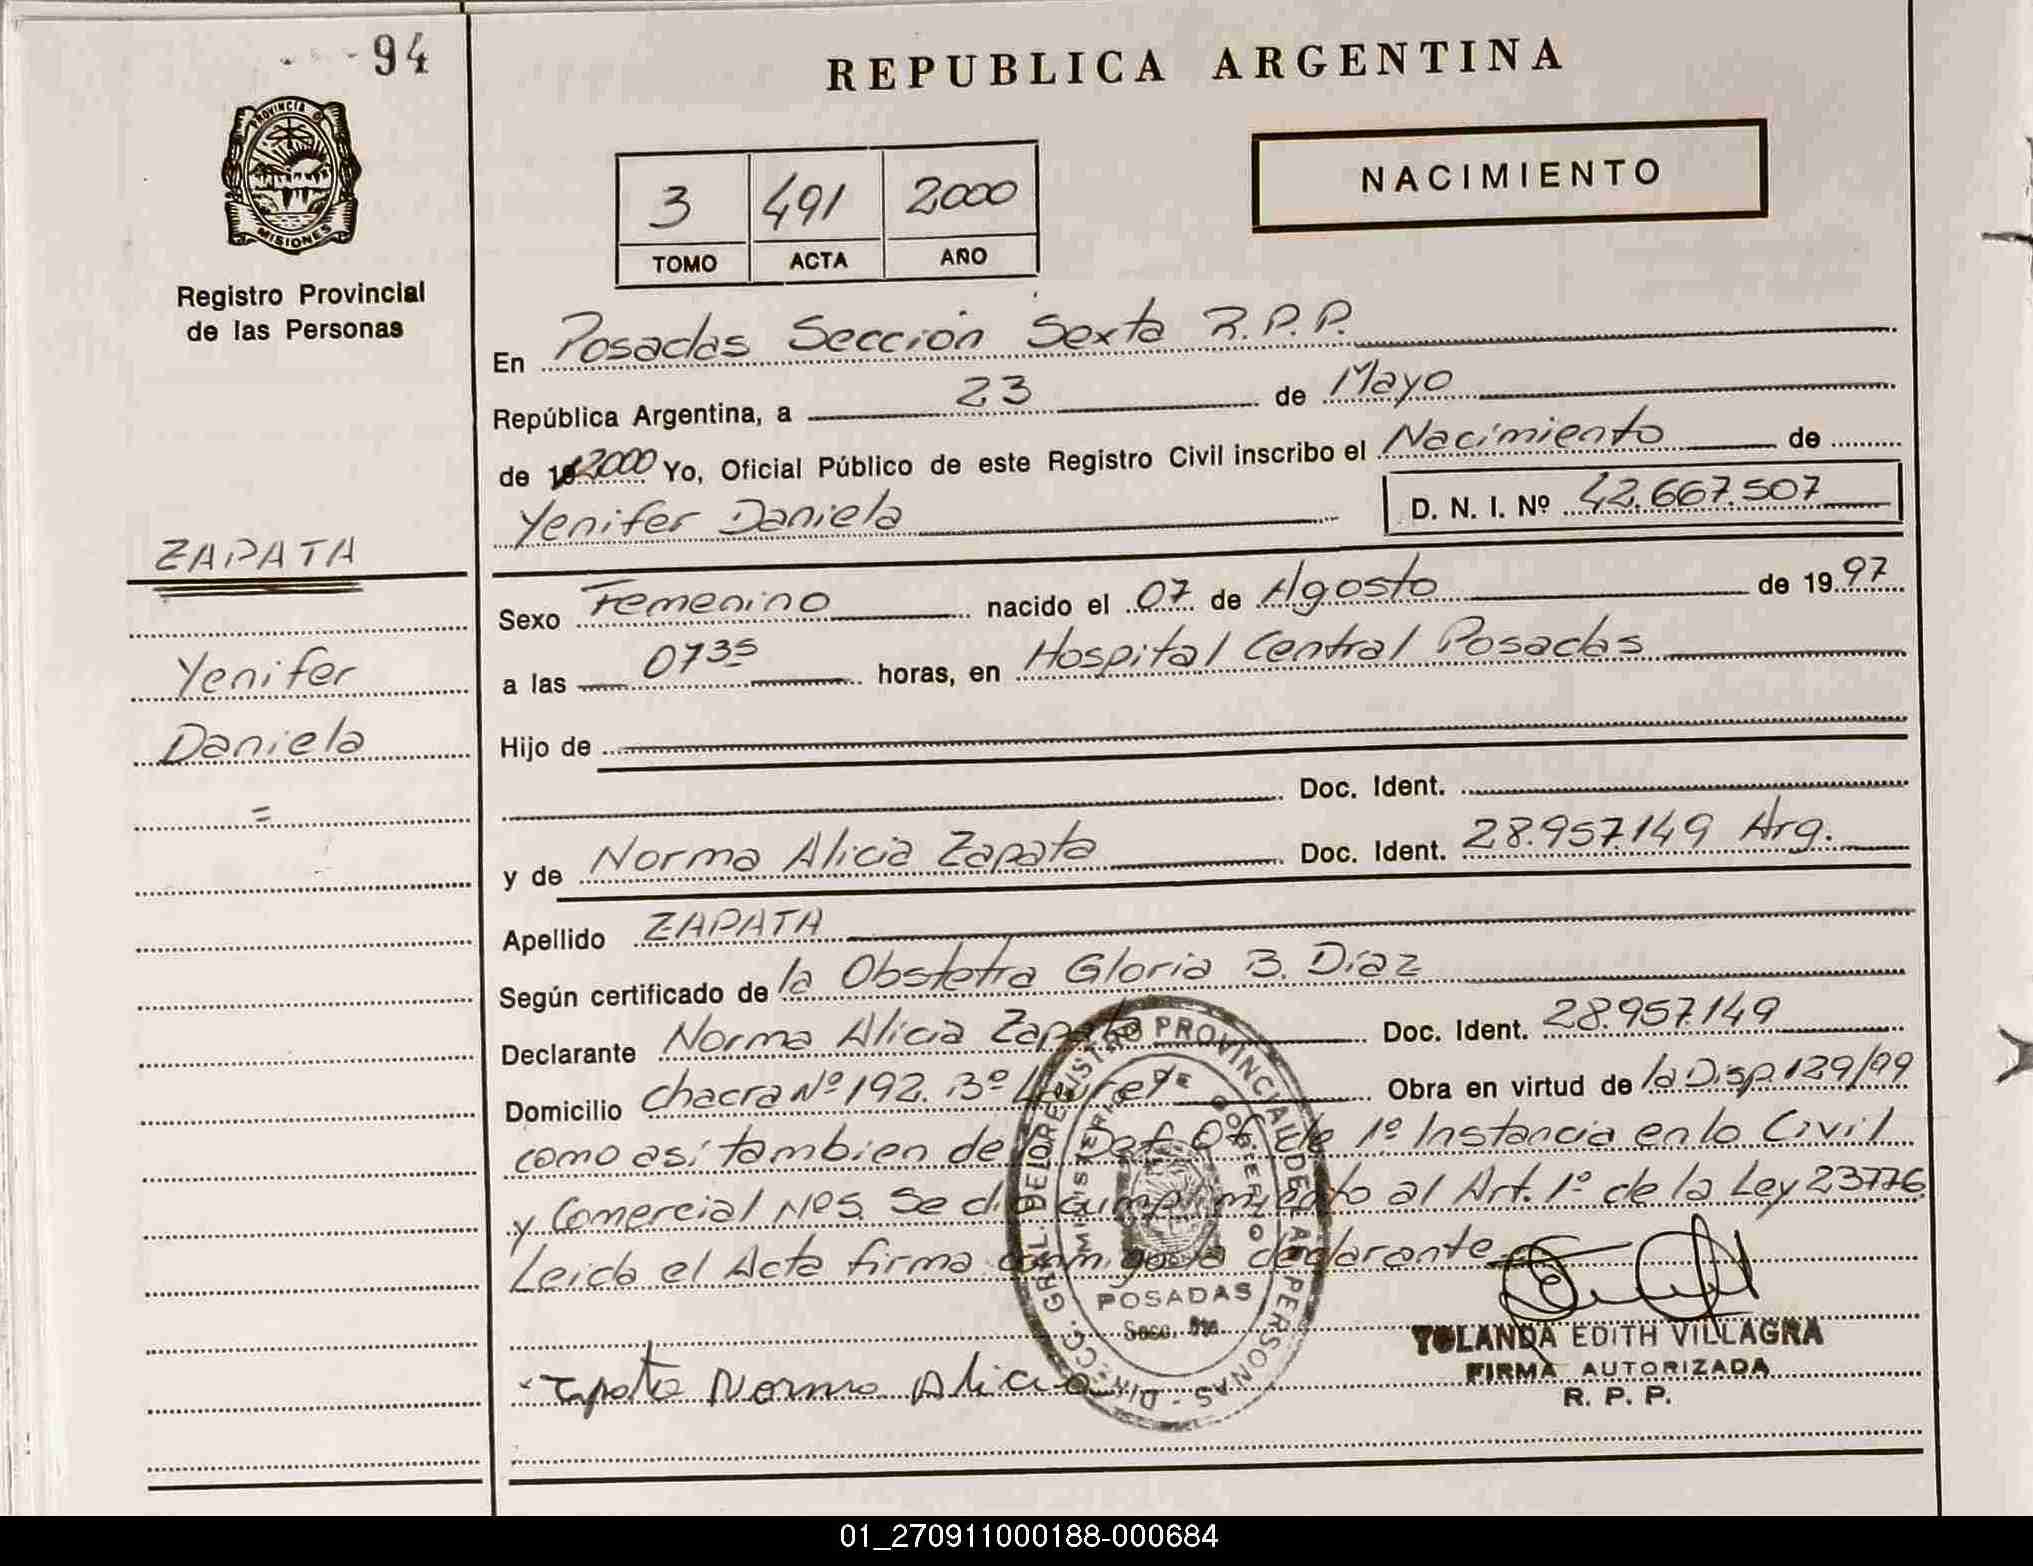 94
PROVINCIA DE
MISIONES
Registro Provincial
de las Personas
ZAPATA
Yenifer
Daniela
=
REPUBLICA ARGENTINA
NACIMIENTO
3 491 2000
TOMO ACTA AÑO
En Posadas Sección Sexta R.P.P.
República Argentina, a 23 de Mayo
de 2000 Yo, Oficial Público de este Registro Civil inscribo el Nacimiento de
Yenifer Daniela D. N. I. Nº 42.667.507
Sexo Femenino nacido el 07 de Agosto de 1997
a las 0735 horas, en Hospital Central Posadas
Hijo de
Doc. Ident.
y de Norma Alicia Zapata Doc. Ident. 28.957.149 Arg.
Apellido ZAPATA
Según certificado de la Obstetra Gloria B. Diaz
Declarante Norma Alicia Zapata Doc. Ident. 28.957.149
Domicilio chacra Nº 192. Bº Obra en virtud de la Disp 129/99
como asi tambien de la Def. Of. de 1º Instancia en lo Civil
y Comercial Nº5. Se dio cumplimiento al Art. 1º de la Ley 23776
Leida el Acta firma conmigo la declarante
DIRECC. GRAL. DEL REGISTRO PROVINCIAL DE LAS PERSONAS
MINISTERIO DE GOBIERNO
POSADAS
Secc.
Zapata Norma Alicia
YOLANDA EDITH VILLAGRA
FIRMA AUTORIZADA
R. P. P.
01_270911000188-000684